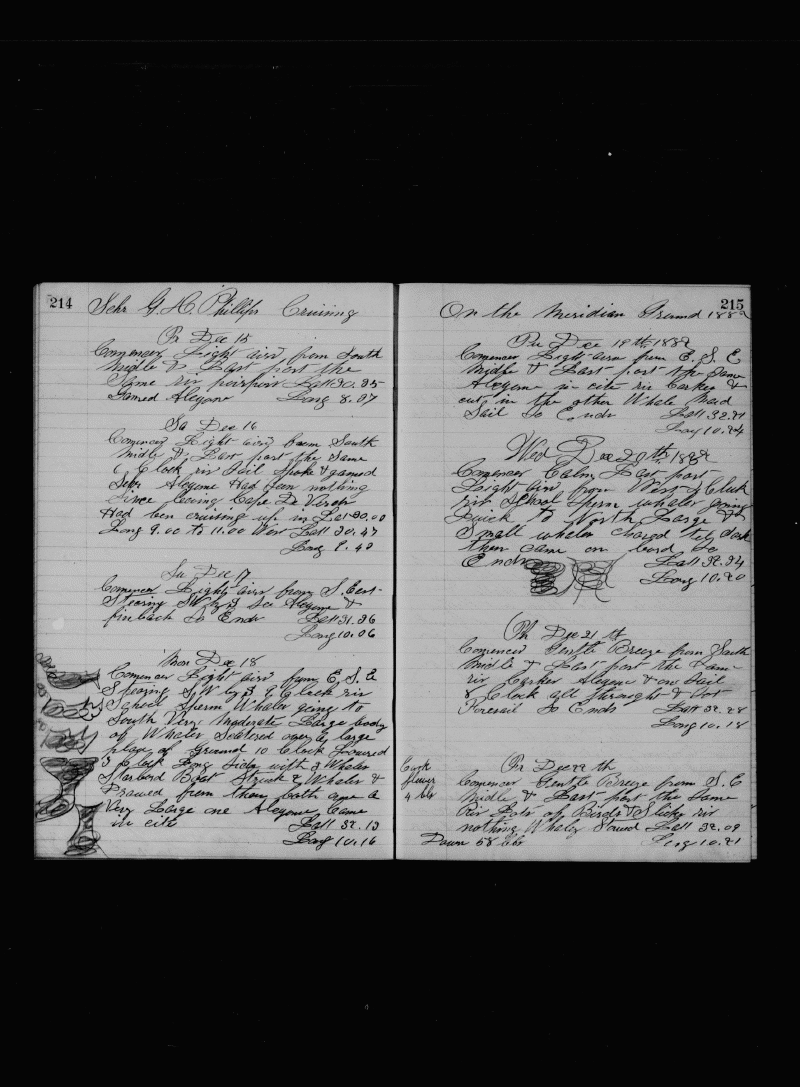 214 Schr G. H. Phillips Cruising
Fr Dec 15
Comences Light airs from South
Middle & Last part the
Same Latt 30.35
Gamed Alcyone Long 8.07
Sa Dec 16
Comences Light airs from South
Midle & Last part the Same
Clock Sail Spoke & gamed
Alcyone Had seen nothing
Since leaving Cape De Verds
Had ben cruising up in Lat 30.00
Long 9.00 to 11.00 West Latt 30.47
Long 9.40
Su Dec 17
Comences Light airs from S. East
Stearing SW by S Alcyone &
finback So Ends Latt 31.36
Long 10.06
Mon Dec 18
Comences Light airs from E. S. E
Stearing SW by S 9 Clock
School Sperm Whales going to
South Very Moderate Large body
of Whales Scatered over a large
place of ground 10 Clock Lowered
3 Clock Long Side with 3 Whales
Starbord Boat Struck 2 Whales &
Drawed from them both one a
Very Large one Alcyone Came
in cite Latt 32.13
Long 10.16
On the Meridian Ground 1882
215
Dec 19th 1882
Comences Light airs from E. S. E
Midle & Last part the Same
Alcyone in cite &
cuts in the other Whale Maid
Sail So Ends Latt 32.21
Long 10.24
Wed Dec 20th 1882
Comences Calm Last part
Light airs from West Clock
School Sperm whales going
quick to North Large &
Small whales chased til dark
then came on bord So
Ends Latt 32.34
Long 10.20
Th Dec 21 th
Comences Gentle Breeze from South
Midle & Last part the Same
Alcyone & one Sail
8 Clock all throught &
Foresail So Ends Latt 32.28
Long 10.18
Cook
4 bbs
Fr Dec 22 th
Comences Gentle Breeze from S. E
Midle & Last part the Same
Lots of Birds & Slicks
nothing Latt 32.09
Down 58 bbs Long 10.21